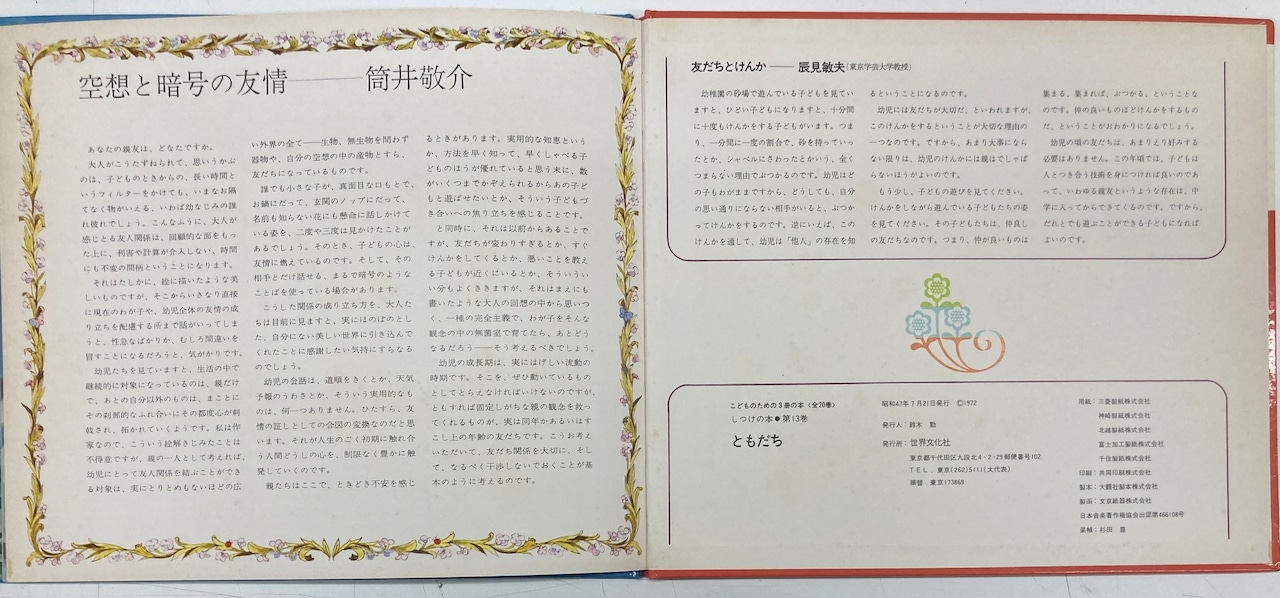 空想と暗号の友情――筒井敬介
あなたの親友は、どなたですか。
大人がこうたずねられて、思いうかぶ
のは、子どものときからの、長い時間と
いうフィルターをかけても、いまなお隔
てなく物がいえる、いわば幼なじみの誰
れ彼れでしょう。こんなふうに、大人が
感じとる友人関係は、回顧的な面をもっ
た上に、利害や計算が介入しない、時間
にも不変の間柄ということになります。
それはたしかに、絵に描いたような美
しいものですが、そこからいきなり直接
に現在のわが子や、幼児全体の友情の成
り立ちを配慮する所まで話がいってしま
うと、性急なばかりか、むしろ間違いを
冒すことになるだろうと、気がかりです。
幼児たちを見ていますと、生活の中で
継続的に対象になっているのは、親だけ
で、あとの自分以外のものは、まことに
その刹那的なふれ合いにその都度心が刺
戟され、拓かれていくようです。私は作
家なので、こういう絵解きじみたことは
不得意ですが、親の一人として考えれば、
幼児にとって友人関係を結ぶことができ
る対象は、実にとりとめもないほどの広
い外界の全て――生物、無生物を問わず
器物や、自分の空想の中の産物とすら、
友だちになっているものです。
誰でも小さな子が、真面目な口もとで、
お鍋にだって、玄関のノップにだって、
名前も知らない花にも懸命に話しかけて
いる姿を、二度や三度は見かけたことが
あるでしょう。そのとき、子どもの心は、
友情に燃えているのです。そして、その
相手とだけ話せる、まるで暗号のような
ことばを使っている場合があります。
こうした関係の成り立ち方を、大人た
ちは目前に見ますと、実にほのぼのとし
た、自分にない美しい世界に引き込んで
くれたことに感謝したい気持にすらなる
のでしょう。
幼児の会話は、道順をきくとか、天気
予報のうわさとか、そういう実用的なも
のは、何一つありません。ひたすら、友
情の証しとしての合図の変換なのだと思
います。それが人生のごく初期に触れ合
う人間どうしの心を、制限なく豊かに触
発していくのです。
親たちはここで、ときどき不安を感じ
るときがあります。実用的な知恵という
か、方法を早く知って、早くしゃべる子
どものほうが優れていると思う末に、数
がいくつまでかぞえられるからあの子ど
もと遊ばせたいとか、そういう子どもづ
き合いへの焦り立ちを感じることです。
と同時に、それは以前からあることで
すが、友だちが変わりすぎるとか、すぐ
けんかをしてくるとか、悪いことを教え
る子どもが近くにいるとか、そういうい
い分もよくききますが、それはまえにも
書いたような大人の回想の中から思いつ
く、一種の完全主義で、わが子をそんな
観念の中の無菌室で育てたら、あとどう
なるだろう――そう考えるべきでしょう。
幼児の成長期は、実にはげしい流動の
時期です。そこを、ぜひ動いているもの
としてとらえなければいけないのですが、
ともすれば固定しがちな親の観念を救っ
てくれるものが、実は同年かあるいはす
こし上の年齢の友だちです。こうお考え
いただいて、友だち関係を大切に、そし
て、なるべく干渉しないでおくことが基
本のように考えるのです。
友だちとけんか――辰見敏夫(東京学芸大学教授)
幼稚園の砂場で遊んでいる子どもを見てい
ますと、ひどい子どもになりますと、十分間
に十度もけんかをする子どもがいます。つま
り、一分間に一度の割合で、砂を持っていっ
たとか、シャベルにさわったとかいう、全く
つまらない理由でぶつかるのです。幼児はど
の子もわがままですから、どうしても、自分
の思い通りにならない相手がいると、ぶつか
ってけんかをするのです。逆にいえば、この
けんかを通して、幼児は「他人」の存在を知
るということになるのです。
幼児には友だちが大切だ、といわれますが、
このけんかをするということが大切な理由の
一つなのです。ですから、あまり大事になら
ない限りは、幼児のけんかには親はでしゃば
らないほうがよいのです。
もう少し、子どもの遊びを見てください。
けんかをしながら遊んでいる子どもたちの姿
を見てください。その子どもたちは、仲良し
の友だちなのです。つまり、仲が良いものは
集まる、集まれば、ぶつかる、ということな
のです。仲の良いものほどけんかをするもの
だ、ということがおわかりになるでしょう。
幼児の頃の友だちは、あまりえり好みする
必要はありません。この年頃では、子どもは
人とつき合う技術を身につければ良いのであ
って、いわゆる親友というような存在は、中
学に入ってからできてくるのです。ですから、
だれとでも遊ぶことができる子どもになれば
よいのです。
こどものための3冊の本〈全20巻〉
しつけの本●第13巻
ともだち
昭和47年7月21日発行 ©1972
発行人：鈴木 勤
発行所：世界文化社
東京都千代田区九段北4-2-29郵便番号102
TEL．東京(262)5111(大代表)
振替．東京173869
用紙：三菱製紙株式会社
神崎製紙株式会社
北越製紙株式会社
冨士加工製紙株式会社
千住製紙株式会社
印刷：共同印刷株式会社
製本：大観社製本株式会社
製函：文京紙器株式会社
日本音楽著作権協会出認第466108号
装幀：杉田 豊